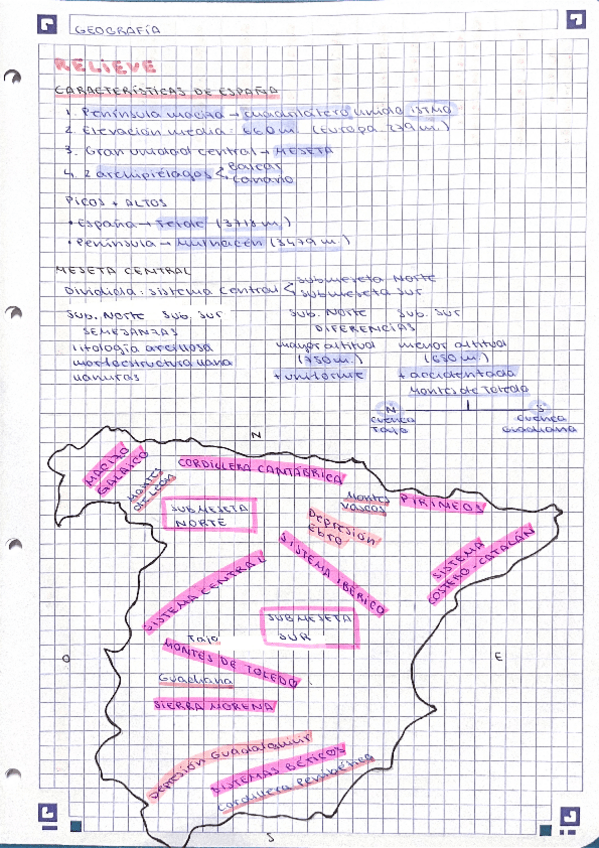 GEOGRAFÍA
RELIEVE
CARACTERÍSTICAS DE ESPAÑA
1. Península maciza → cuadrilátero unida ISTMO
2. Elevación media: 660 m. (Europa 279 m.)
3. Gran unidad central → MESETA
4. 2 archipiélagos < balear
canario
PICOS + ALTOS
• España → Teide (3718 m.)
• Península → Mulhacén (3479 m.)
MESETA CENTRAL
Dividida: sistema central < submeseta Norte
submeseta sur
Sub. Norte Sub. Sur Sub. Norte Sub. Sur
SEMEJANZAS DIFERENCIAS
litología arcillosa mayor altitud menor altitud
morfoestructura llana (750 m.) (650 m.)
llanuras + uniforme + accidentada
Montes de Toledo
N S
cuenca cuenca
Tajo Guadiana
N
MACIZO
GALAICO
Montes
de León
CORDILLERA CANTÁBRICA
Montes
Vascos
PIRINEOS
SUBMESETA
NORTE
Depresión
Ebro
SISTEMA
COSTERO-CATALÁN
SISTEMA CENTRAL
SISTEMA IBÉRICO
SUBMESETA
SUR
Tajo
MONTES DE TOLEDO
O
E
Guadiana
SIERRA MORENA
Depresión Guadalquivir
SISTEMAS BÉTICOS
Cordillera Penibética
S